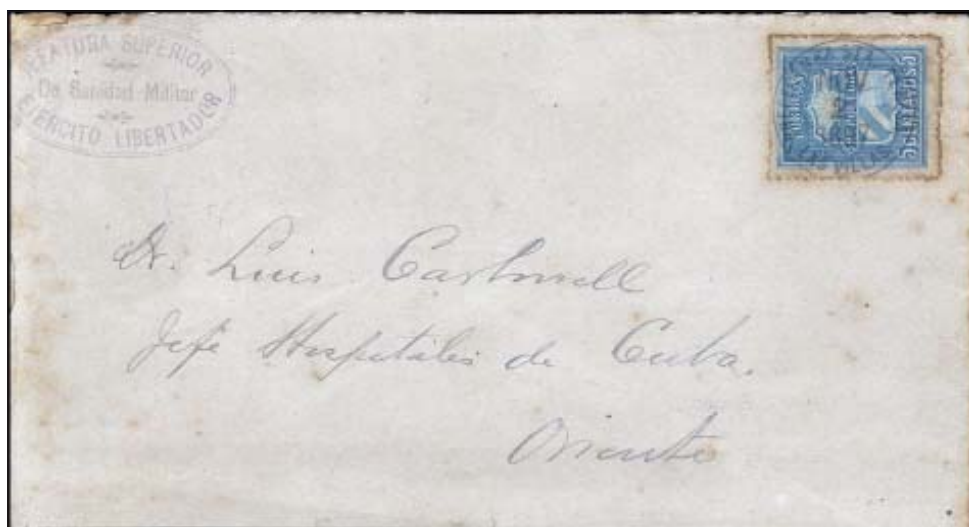 JEFATURA SUPERIOR
De Sanidad Militar
EJERCITO LIBERTADOR
CORREOS
5 CENTAVOS
Dr. Luis
Jefe Hospitales de Cuba.
Oriente